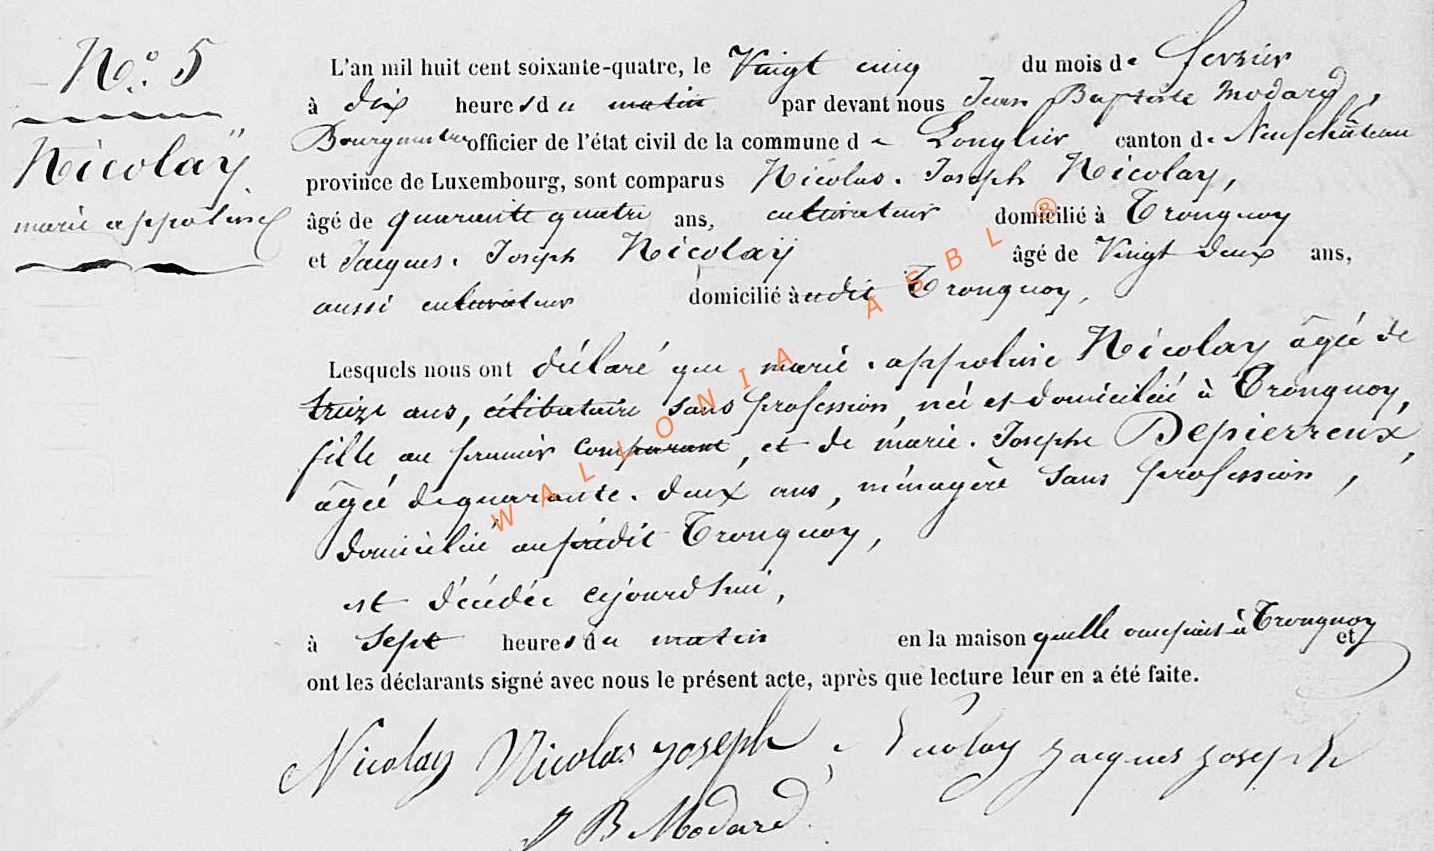 N.° 5
Nicolaÿ
marie appoline
L'an mil huit cent soixante-quatre, le Vingt cinq du mois de fevrier
à dix heures du matin par devant nous Jean Baptiste Modard,
Bourgmestre officier de l'état civil de la commune de Longlier canton de Neufchâteau
province de Luxembourg, sont comparus Nicolas. Joseph Nicolay,
âgé de quarante quatre ans, cultivateur domicilié à Tronquoy
et Jacques. Joseph Nicolaÿ âgé de Vingt deux ans,
aussi cultivateur domicilié à udit Tronquoy,
Lesquels nous ont déclaré que marie. appoline Nicolay âgée de
treize ans, célibataire sans profession, née et domiciliée à Tronquoy,
fille au premier comparant, et de marie. Josephe Depierreux,
âgée de quarante. deux ans, ménagère sans profession,
domiciliée au prédit Tronquoy,
est décédée cejourd'hui,
à sept heures du matin en la maison quelle occupait à Tronquoy et
ont les déclarants signé avec nous le présent acte, après que lecture leur en a été faite.
Nicolay Nicolas joseph Nicolay jacques joseph
J B Modard
WALLONIA ASBL ®